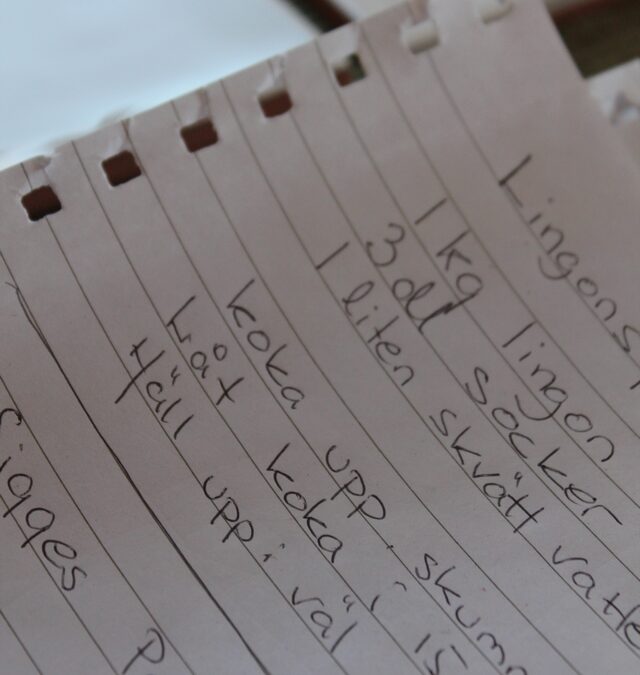 Lingons
1 kg lingon
3 dl socker
1 liten skvätt vatte
koka upp. skum
Låt koka i 15
Häll upp i väl
Sigges P